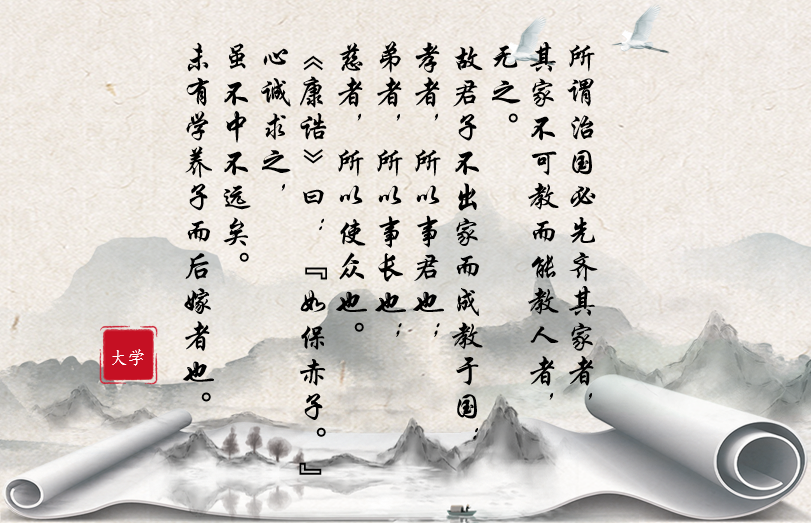 所谓治国必先齐其家者，
其家不可教而能教人者，
无之。
故君子不出家而成教于国：
孝者，所以事君也；
弟者，所以事长也；
慈者，所以使众也。
《康诰》曰：『如保赤子。』
心诚求之，
虽不中不远矣。
未有学养子而后嫁者也。
大学